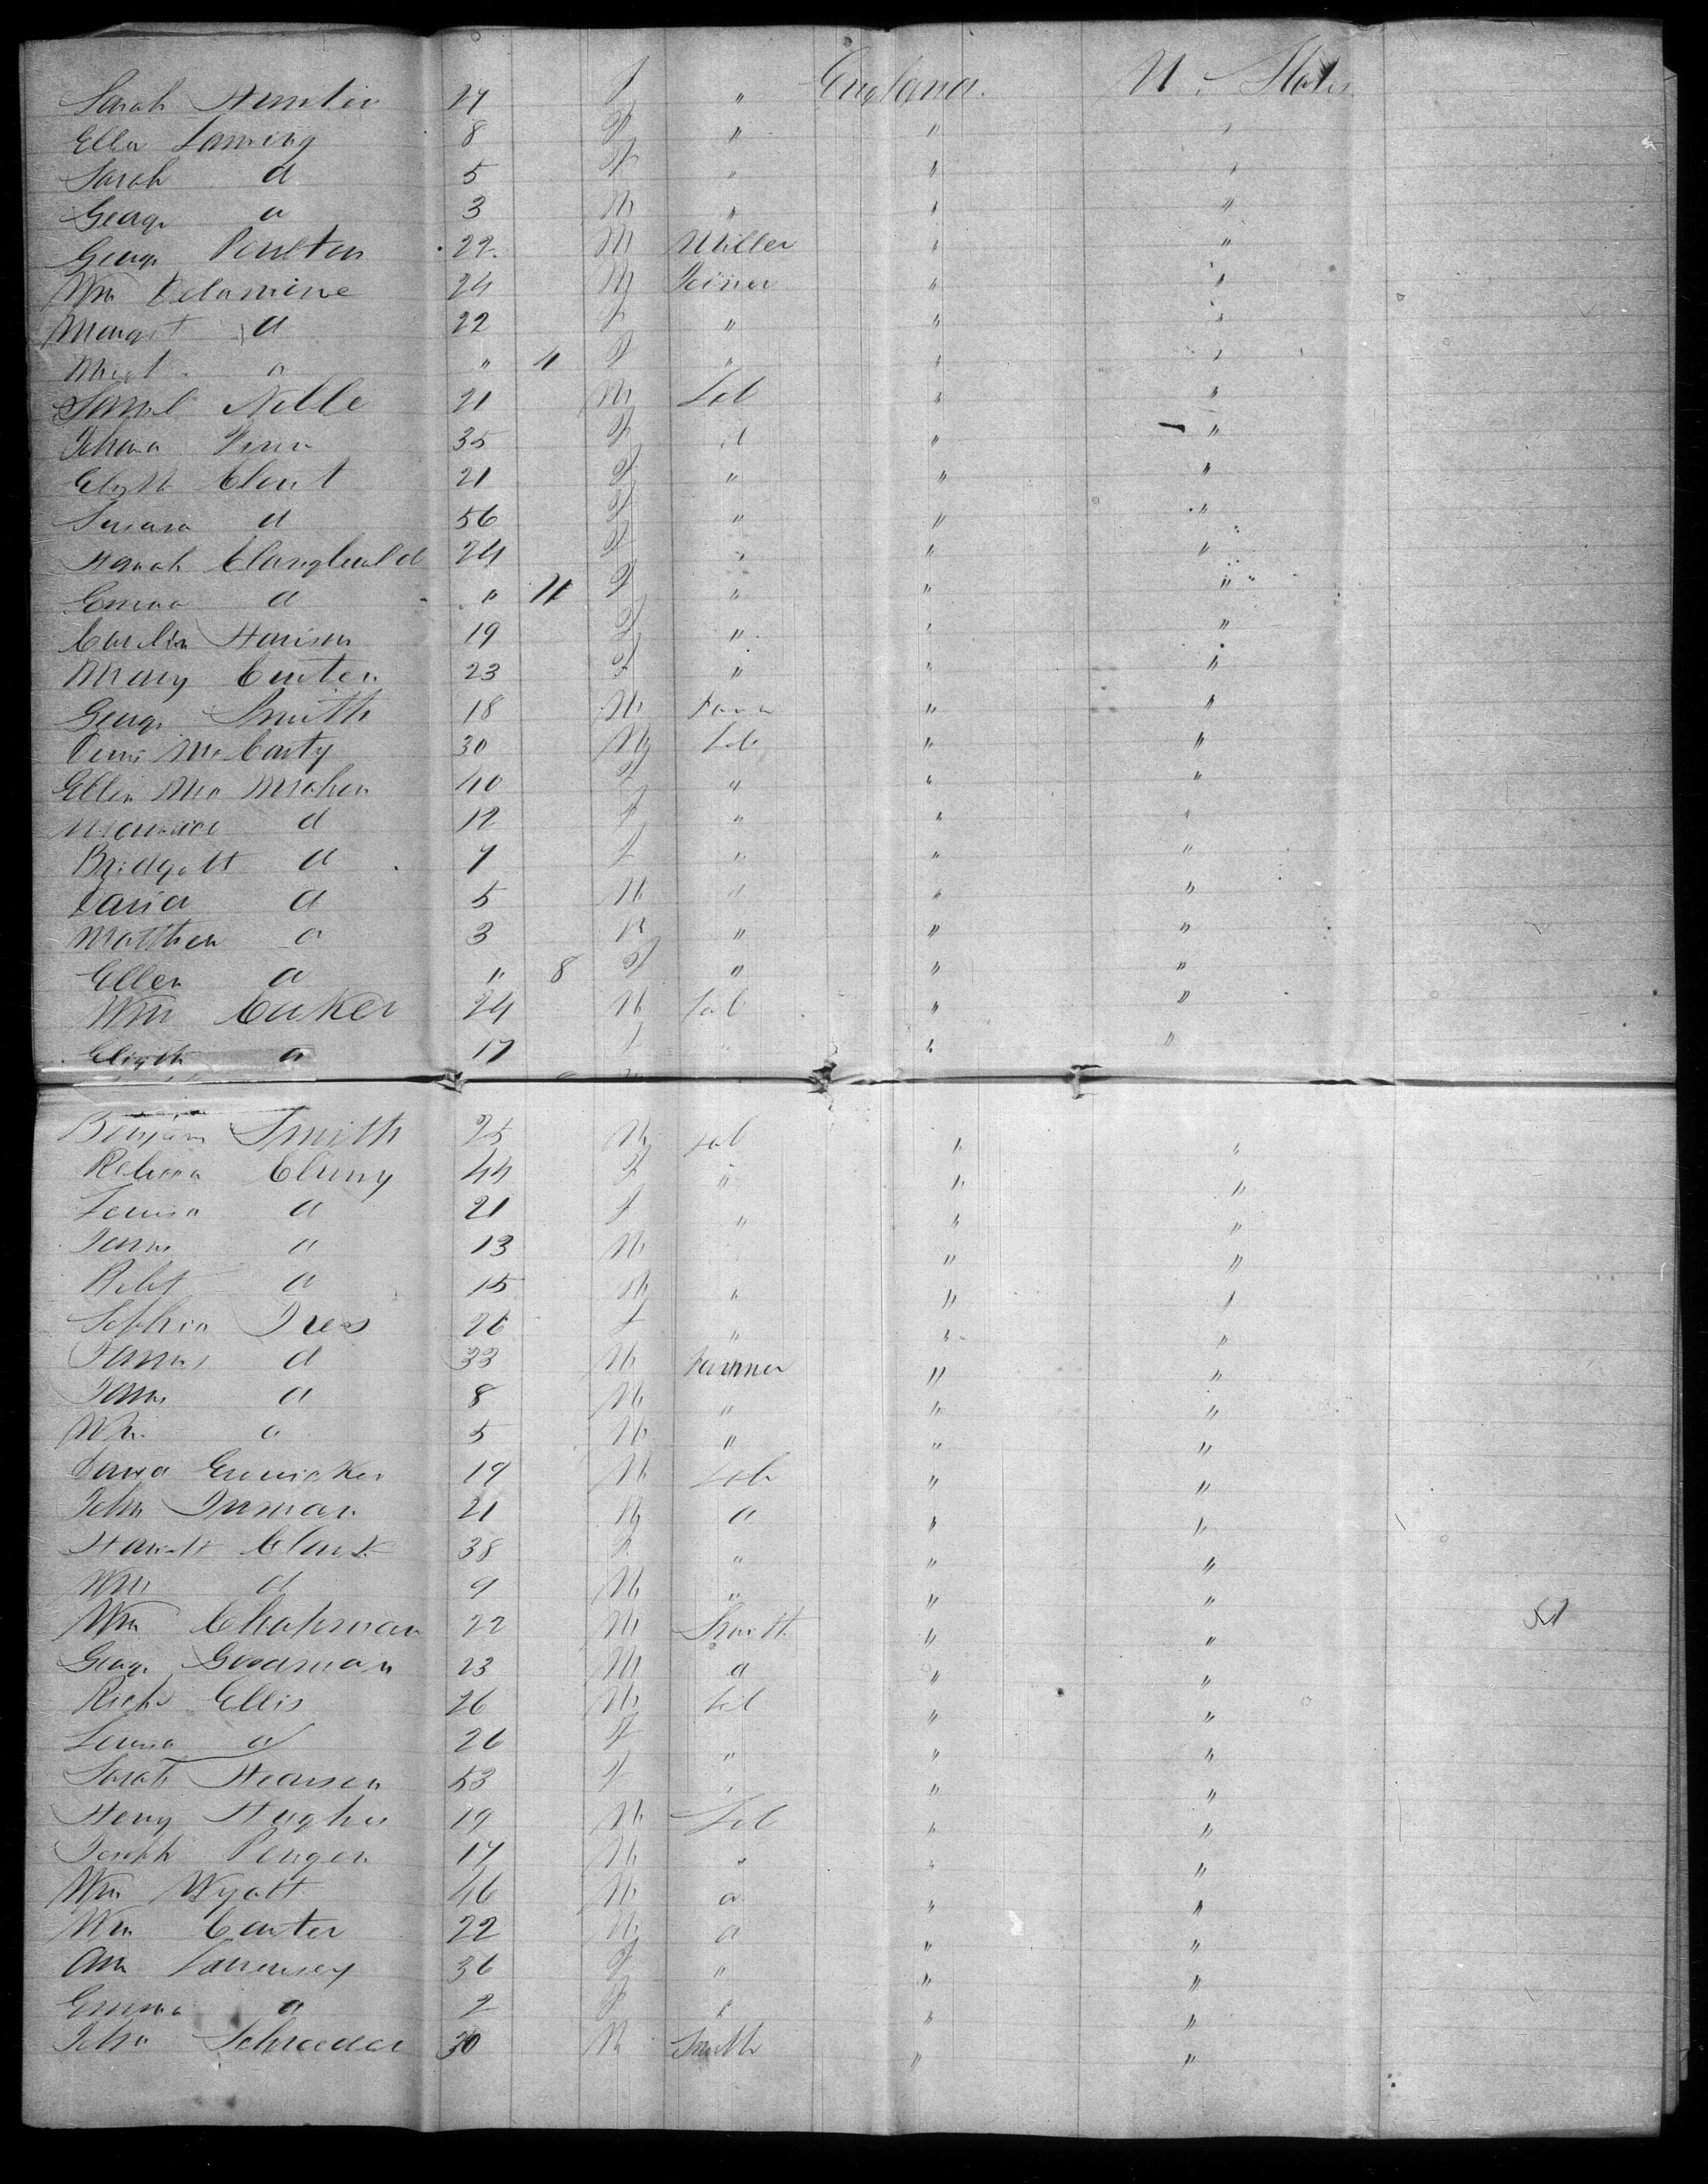 Sarah Hunter 27 F " England U. States
Ella Laming 8 F " " "
Sarah d 5 F " " "
George d 3 M " " "
George Poulton 22 M Miller " "
Wm Delamine 24 M Joiner " "
Margt d 22 F " " "
d " F " " "
Saml Noble 21 M Lab " "
35 F d " "
Elizth Clout 21 F " " "
Susana d 56 F " " "
Hanah 24 F " " "
Emma d " 11 F " " "
Harison 19 F " " "
Mary Carter 23 F " " "
George Smith 18 M Farm " "
Denis McCarty 30 M Lab " "
Ellen McMahon 40 F " " "
d 12 F " " "
Bridgett d 7 F " " "
David d 5 M d " "
Matthew d 3 M " " "
Ellen d " 8 F " " "
Wm 24 M Lab " "
Elizth d 17 F " " "
Benjam Smith 25 M Lab " "
Rebecca Cluny 44 F " " "
Louisa d 21 F " " "
James d 13 M " "
Robt d 15 M " " "
Sophia Ives 26 F " " "
James d 33 M Farmer " "
James d 8 M " " "
Wm d 5 M " " "
19 M Lab " "
John Inman 21 M d " "
Hariett Clark 38 F " " "
Wm d 9 M " " "
Wm Chapman 22 M Smith " "
George Goodman 23 M d " "
Richd Ellis 26 M Lab " "
Louisa d 26 F " " "
Sarah Hearsen 53 F " " "
Henry Hughes 19 M Lab " "
Joseph 17 M " " "
Wm Wyatt 46 M d " "
Wm Carter 22 M d " "
Ann 36 F " " "
Emma d 2 F " " "
John Schroeder 30 M Smith " "